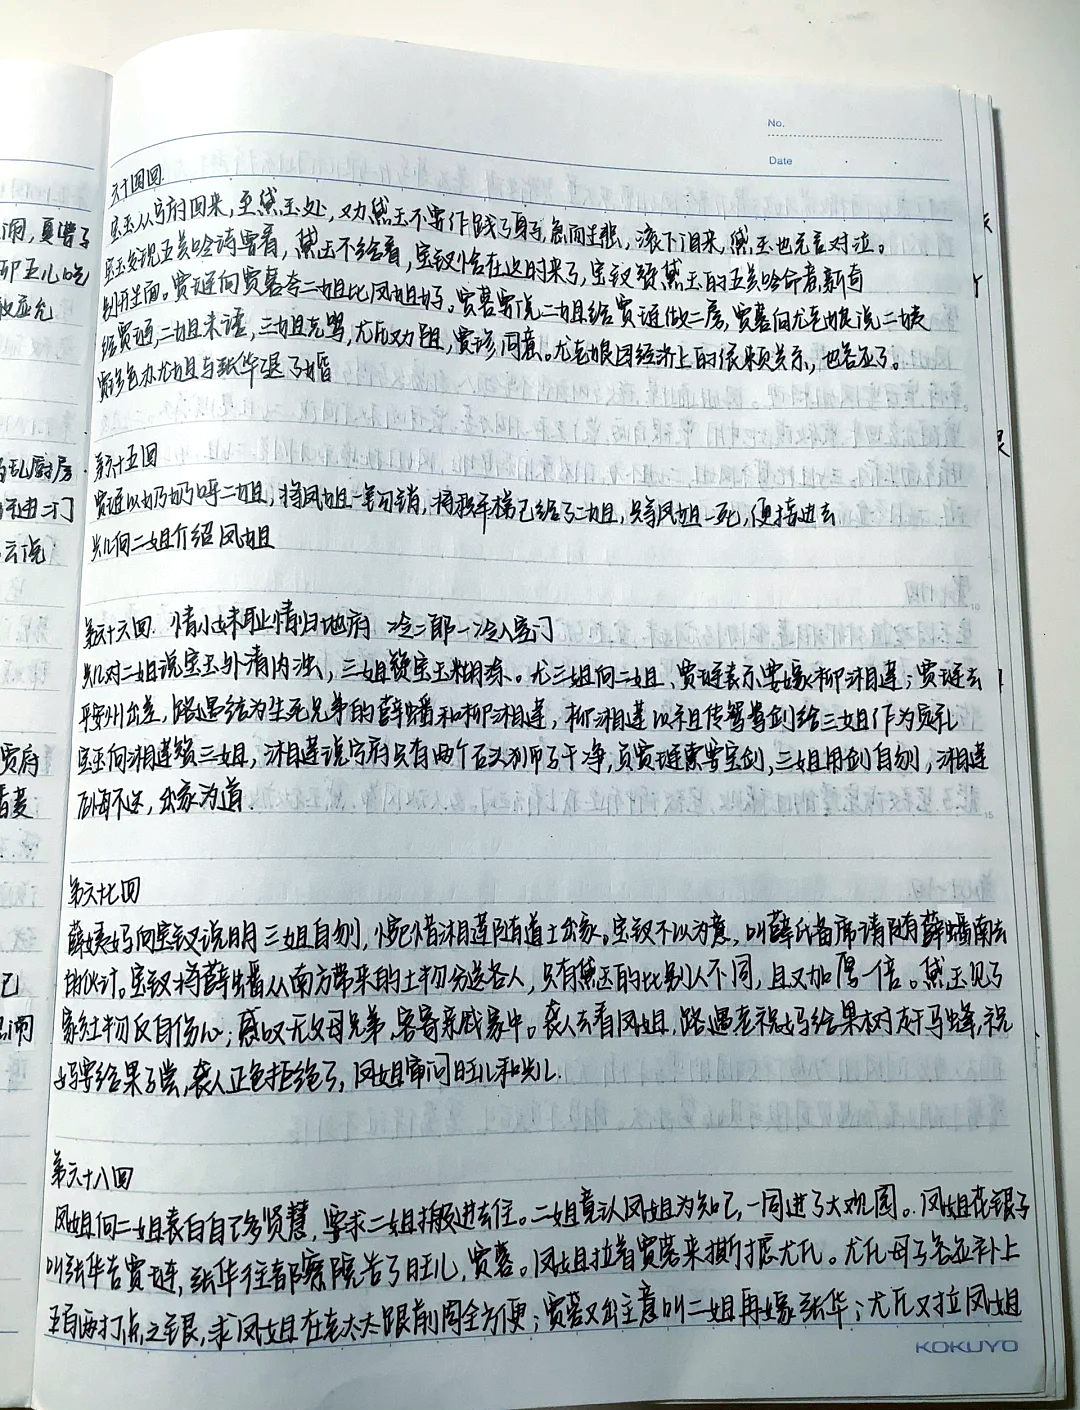 No.
Date
六十四回
宝玉从宁府回来，至黛玉处，又劝黛玉不要作践了身子，急而生悲，滚下泪来，黛玉也无言对泣。
宝玉发现五美吟诗要看，黛玉不给看，宝钗恰在这时来了，宝钗赞黛玉的五美吟命意新奇
别开生面。贾琏向贾蓉夸二姐比凤姐好。贾蓉要说二姐给贾琏做二房，贾蓉向尤老娘说二姨
给贾琏，二姐来谑，三姐笑骂，尤氏劝阻，贾珍同意。尤老娘因经济上的依赖关系，也答应了。
贾珍包办尤二姐与张华退了婚
第六十五回
贾琏以奶奶呼二姐，将凤姐一笔勾销，将积年梯己给了二姐，只等凤姐一死，便接进去
兴儿向二姐介绍凤姐
第六十六回 情小妹耻情归地府 冷二郎一冷入空门
兴儿对二姐说宝玉外清内浊，三姐赞宝玉糊涂。尤三姐向二姐、贾琏表示要嫁柳湘莲；贾琏去
平安州出差，路遇结为生死兄弟的薛蟠和柳湘莲，柳湘莲以祖传鸳鸯剑给三姐作为定礼
宝玉向湘莲赞三姐，湘莲说宁府只有两个石头狮子干净，负贾琏索要宝剑，三姐用剑自刎，湘莲
后悔不迭，出家为道.
第六十七回
薛姨妈向宝钗说明三姐自刎，惋惜湘莲随道士出家。宝钗不以为意，叫薛氏备席请随薛蟠南去
的伙计。宝钗将薛蟠从南方带来的土物分送各人，只有黛玉的比别人不同，且又加厚一倍。黛玉见了
家乡土物反自伤心；感叹无父母兄弟，客寄亲戚家中。袭人去看凤姐，路遇老祝妈给果树赶马蜂，祝
妈要给果子尝，袭人正色拒绝了，凤姐审问旺儿和兴儿.
第六十八回
凤姐向二姐表白自己多贤慧，要求二姐搬进去住。二姐竟认凤姐为知己，一同进了大观园。凤姐花银子
叫张华告贾琏，张华往都察院告了旺儿，贾蓉。凤姐拉着贾蓉来撕打尤氏。尤氏母子答应补上
五百两打点之银，求凤姐在老太太跟前周全方便；贾蓉又出主意叫二姐再嫁张华；尤氏又拉凤姐
KOKUYO